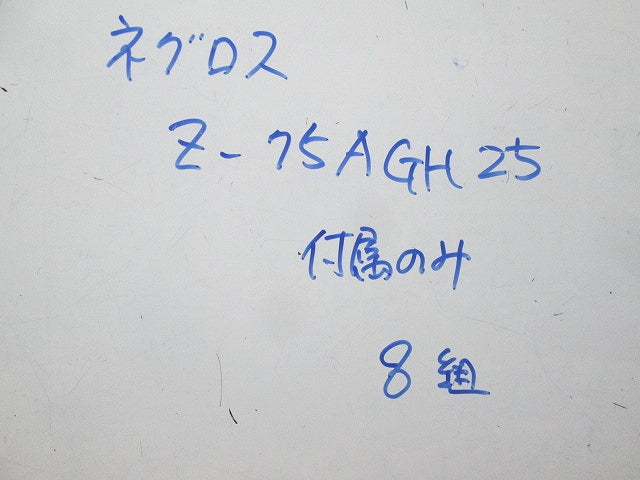 ネグロス
Z-75AGH25
付属のみ
8組